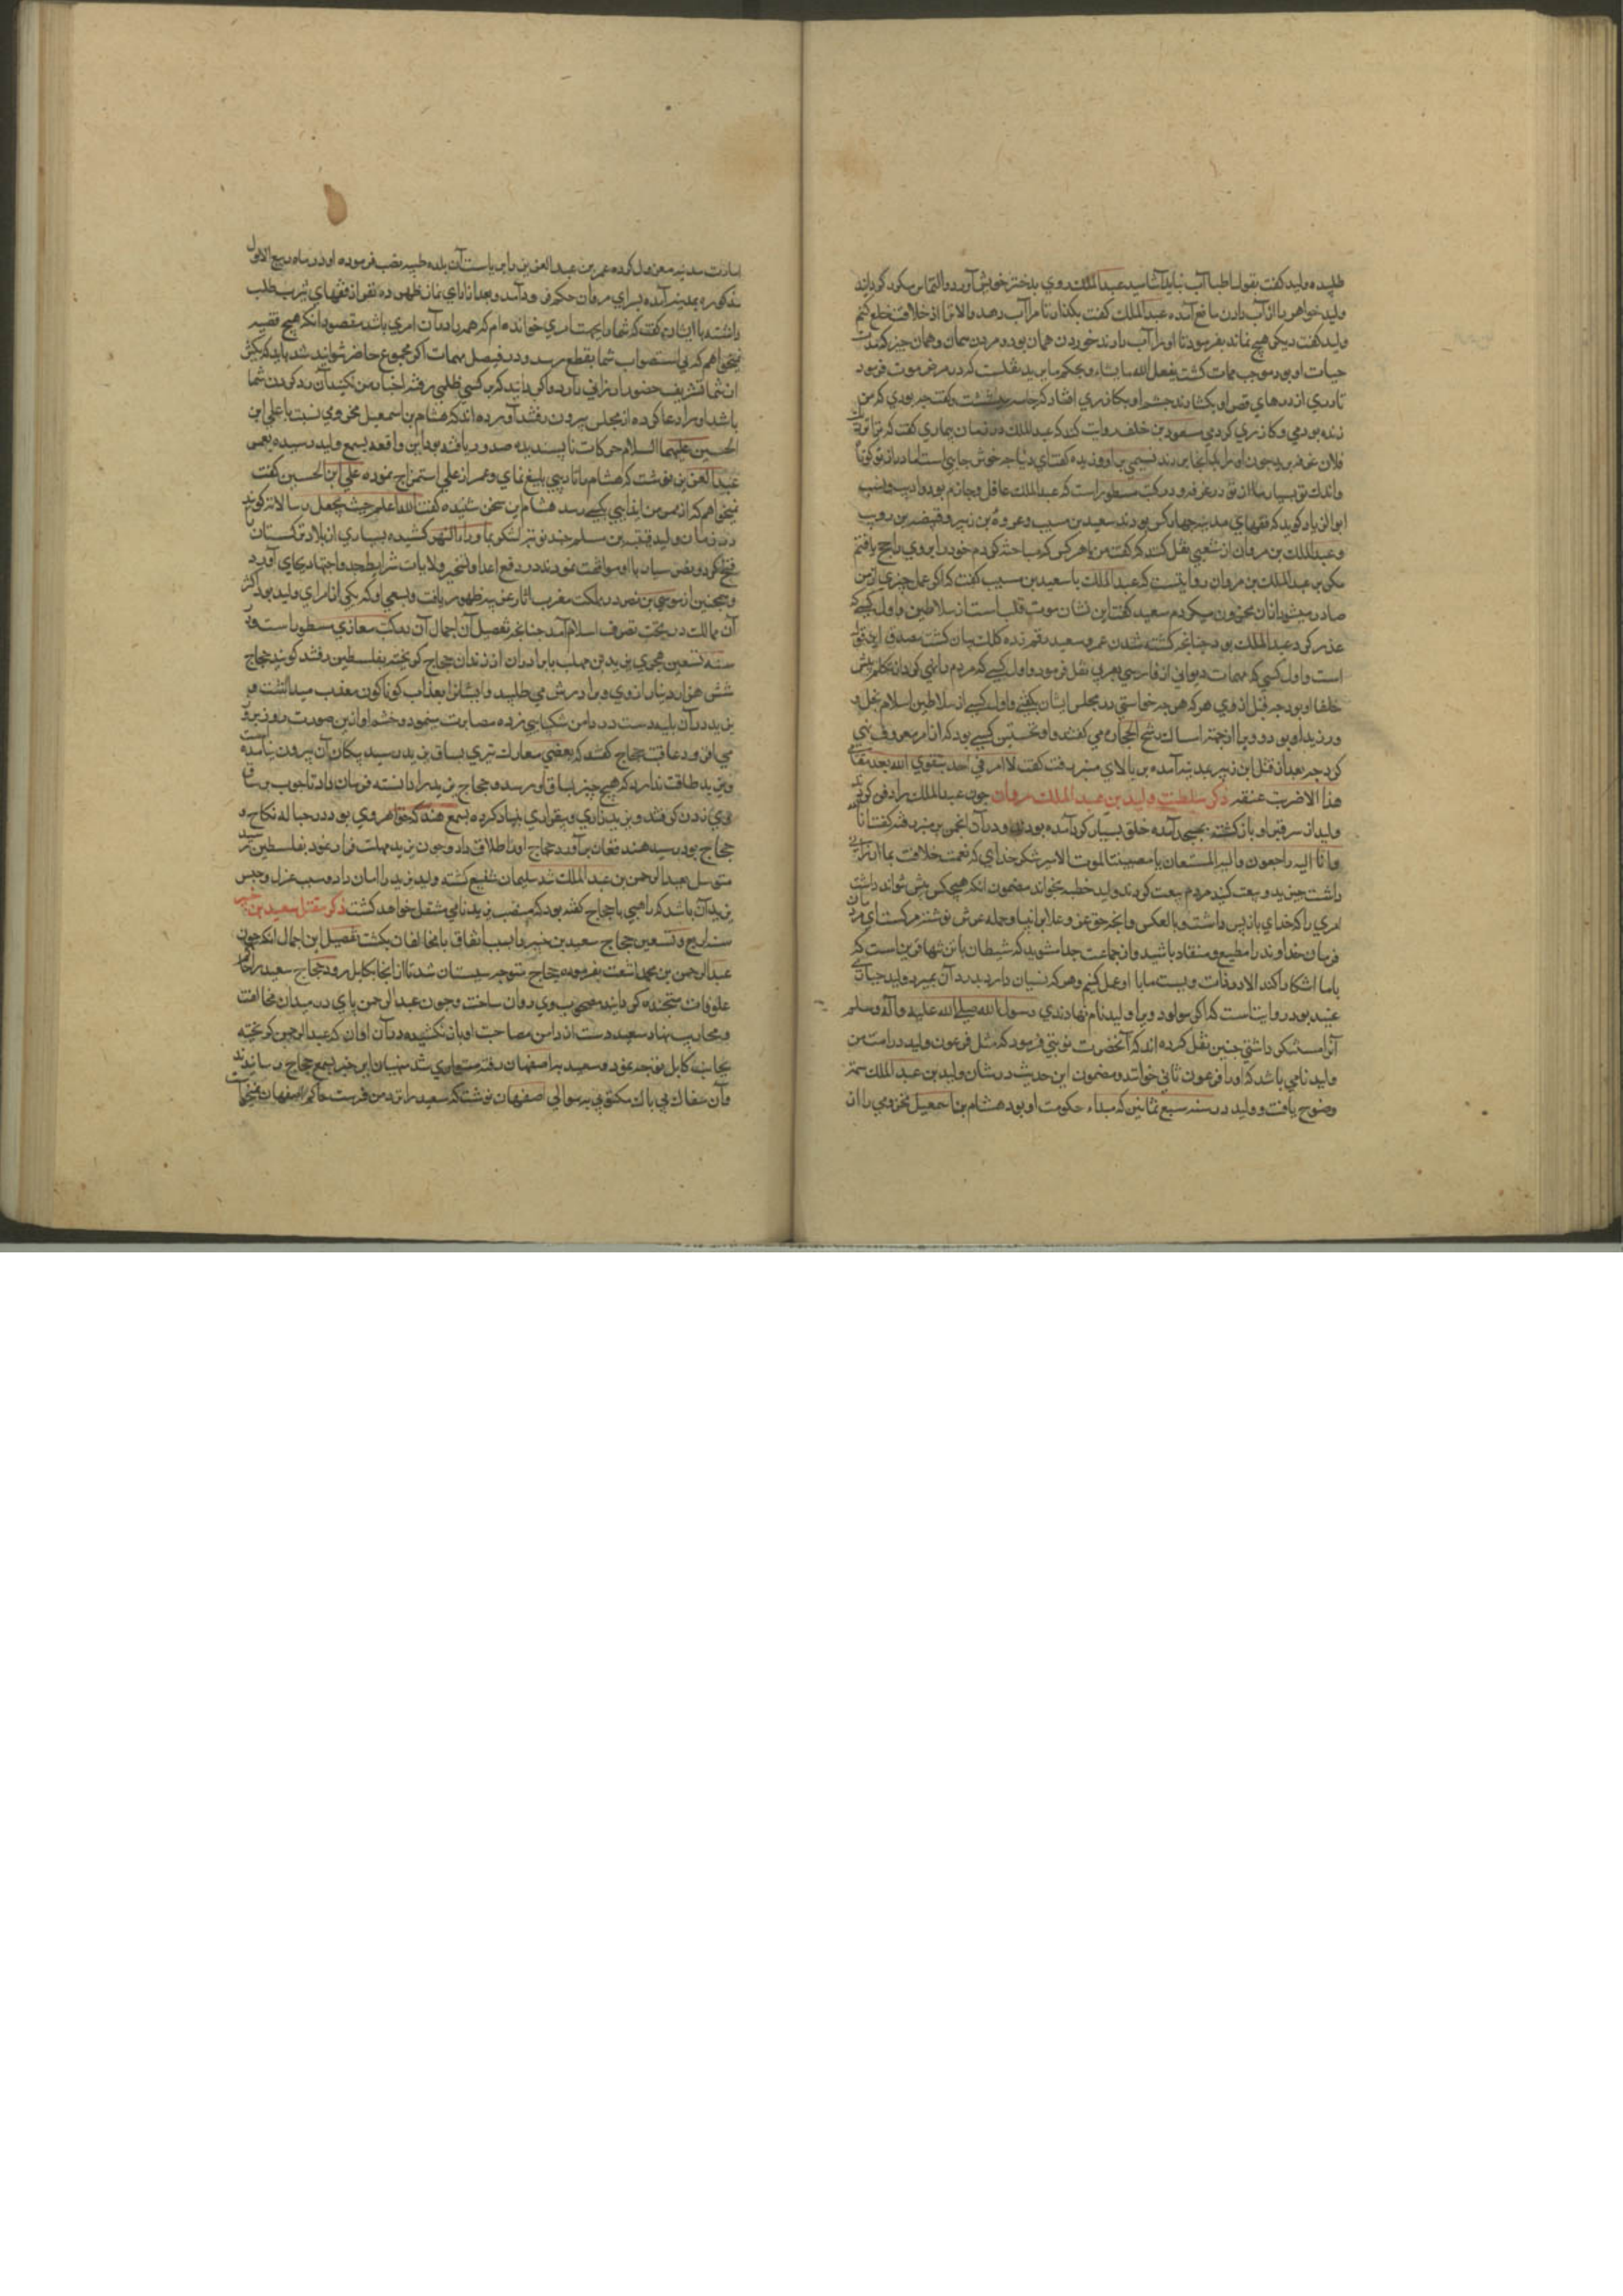 طلبیده ولید کفت بقول اطبا آب نباید آشامید عبدالملک روی بدختر خویش آورد و التماس میکرد کرد
ولید خواهر را از آب دادن مانع آمده عبدالملک کفت بکذار تا مرا آب دهد والا ترا از خلافت خلع کنم
ولید کفت دیکر هیچ نماند بفرمود تا او را آب دادند خوردن همان بود و مردن همان و همان چیز که
حیات او بود موجب ممات کشت یفعل الله ما یشاء و یحکم ما یرید نقلست که در مرض موت فرمود
تا دری از درهای قصر او بکشادند چشم او بکازری افتاد که جامه می کفت چه بودی که من
زنده بودمی و کازری کردمی سعود بن خلف روایت کند که عبدالملک در زمان بیماری کفت که مرا
فلان غرفه برید چون او را بدانجا بردند نسیمی بر او وزیده کفت ای دنیا چه خوش جایی است
واندک تو بسیار ما از تو در غرور و در کتب مسطور است که عبدالملک عاقل و حازم بود و ادیب و لبیب
ابو الزیاد کوید که فقهای مدینه چهار کس بودند سعید بن مسیب و عروة بن زبیر و قبیصه بن ذویب
و عبدالملک بن مروان از شعبی نقل کنند که کفت من با هر کس که مباحثه کردم خود را بر وی راجح یافتم
مکر بر عبدالملک بن مروان روایتست که عبدالملک با سعید بن مسیب کفت که اکر عمل چیزی از من
صادر میشود از آن محزون میکردم سعید کفت این نشان موت قلب است از سلاطین و اول کسی که
غدر کرد عبدالملک بود چنانچه کشته شدن عمرو سعید رقم زده کلک بیان کشت مصدق این قول
است و اول کسی که مهمات دیوانی از فارسی بعربی نقل فرمود و اول کسی که مردم را نهی کرد از تکلم پیش
خلفا او بود چه قبل از وی هر که هر چه خواستی در مجلس ایشان بکفتی و اول کسی از سلاطین اسلام بخل
ورزید او بود و ویرا از جهت امساک رشح الحجاره می کفتند و او نخستین کسی بود که از امر بمعروف نهی
کرد چه بعد از قتل ابن زبیر بمدینه آمده بر بالای منبر رفت کفت لا امر فی احد بتقوی الله بعد مقامی
هذا الا ضربت عنقه ذکر سلطنت ولید بن عبد الملک مروان چون عبدالملک را دفن کردند
ولید از سر قبر او باز کشته بمسجد آمده خلق بسیار کرد آمده بودند و در آن انجمن بر منبر رفته کفت انا لله
و انا الیه راجعون والله المستعان یا مصیبتنا لموت الامیر شکر خدای که نعمت خلافت بما ارزانی
داشت خیزید و بیعت کنید مردم بیعت کردند ولید خطبه بخواند مضمون آنکه هیچکس پیش نتواند داشت
امری را که خدای باز پس داشت و بالعکس و آنچه حق عز و علا بر انبیا و حمله عرش نوشته مرکست ای مردمان
فرمان خداوند را مطیع و منقاد باشید و از جماعت جدا مشوید که شیطان با تن تنها قرین است
باما اشکارا کند
عنید بود روایت است که اکر مولود ویرا ولید نام نهادندی رسول الله صلی الله علیه و آله و سلم
آنرا مستنکر داشتی چنین نقل کرده اند که آنحضرت نوبتی فرمود که مثل فرعون ولید در امت من
ولید نامی باشد که او را فرعون ثانی خوانند و مضمون این حدیث در شان ولید بن عبد الملک سمت
وضوح یافت و ولید در سنه سبع ثمانین که مبداء حکومت او بود هشام بن اسمعیل مخزومی را از
امارت مدینه معزول کرده عمر بن عبد العزیز را بریاست آن بلده طیبه نصب فرموده او در ماه ربیع الاول
مذکوره بمدینه آمده بسرای مروان حکم فرود آمد و بعد از ادای نماز ظهر ده نفر از فقهای یثرب طلب
داشته با ایشان کفت که شما را بجهت امری خوانده ام که همه را در آن امری باشد مقصود آنکه هیچ قضیه
نمیخواهم که بی استصواب شما بقطع رسد و در فیصل مهمات اکر مجموع حاضر نتوانند شد باید که یکی
از شما تشریف حضور ارزانی دارد و اکر دانید که بر کسی ظلمی رفته اخبار من نکنید آن در کردن شما
باشد او را دعا کرده از مجلس بیرون رفتند آورده اند که هشام بن اسمعیل مخزومی نسبت با علی ابن
الحسین علیهما السلام حرکات ناپسندیده صدور یافته بود این واقعه بسمع ولید رسیده بعمر
عبد العزیز نوشت که هشام را تادیبی بلیغ نمای و عمر از علی استمزاج نموده علی ابن الحسین کفت
نمیخواهم که از من ایذایی بکسی رسد هشام این سخن شنیده کفت الله اعلم حیث یجعل رسالاته کویند
در زمان ولید قتیبه بن مسلم چند نوبت لشکر بما وراء النهر کشیده بسیاری از بلاد ترکستان
فتح کرد و بعضی سپاه با او موافقت نمودند در دفع اعدا و تسخیر ولایات شرایط جد و اجتهاد بجای آورد
و همچنین از موسی بن نصر در مملکت مغرب آثار غریبه ظهور یافت و بسعی او که یکی از امرای ولید بود اکثر
آن ممالک در تحت تصرف اسلام آمد چنانچه تفصیل آن اجمال آن در کتب مغازی مسطور است و در
سنه تسعین هجری یزید بن مهلب با برادران از زندان حجاج کریخته بفلسطین رفتند کویند حجاج
شش هزار دینار از وی و برادرش می طلبید و ایشانرا بعذاب کوناکون معذب میداشت و
یزید در آن بلیه دست در دامن شکیبایی زده مصابرت مینمود و خشم او ازین صورت روز بروز
می افزود عاقبت حجاج کفتند که بعضی معارک تیری بساق یزید رسید پیکان آن بیرون نیامده
و یزید طاقت ندارد که هیچ چیز بساق او رسد و حجاج یزید را دانسته فرمان داد تا چوب بر ساق
وی زدن کرفتند و یزید زاری و بیقراری بنیاد کرده بسمع هند که خواهر وی بود و در حباله نکاح
حجاج بود رسید هند فغان برآورد حجاج او را طلاق داد و چون یزید مهلت فرار نمود بفلسطین
متوسل بعبد الرحمن بن عبد الملک شد سلیمان شفیع کشته ولید یزید را امان داد و سبب عزل و حبس
یزید آن باشد که راهبی با حجاج کفته بود که منصب یزید نامی منتقل خواهد کشت ذکر مقتل سعید بن جبیر
سنه اربع و تسعین حجاج سعید بن جبیر را بسبب اتفاق با مخالفان بکشت تفصیل این اجمال آنکه چون
عبد الرحمن بن محمد اشعث بفرموده حجاج متوجه سیستان شد تا از آنجا بکابل رود حجاج سعید را
علوفات متجنده کردانیده مصحوب وی روان ساخت و چون عبد الرحمن پای در میدان مخالفت
و محاربت نهاد سعید دست از دامن مصاحبت او باز نکشیده در آن اوان که عبد الرحمن کریخته
بجانب کابل توجه نمود و سعید باصفهان رفته متواری شد منهیان این خبر بسمع حجاج رسانیدند
و آن سفاک بی باک مکتوبی به والی اصفهان نوشت که سعید را نزد من فرست حاکم اصفهان